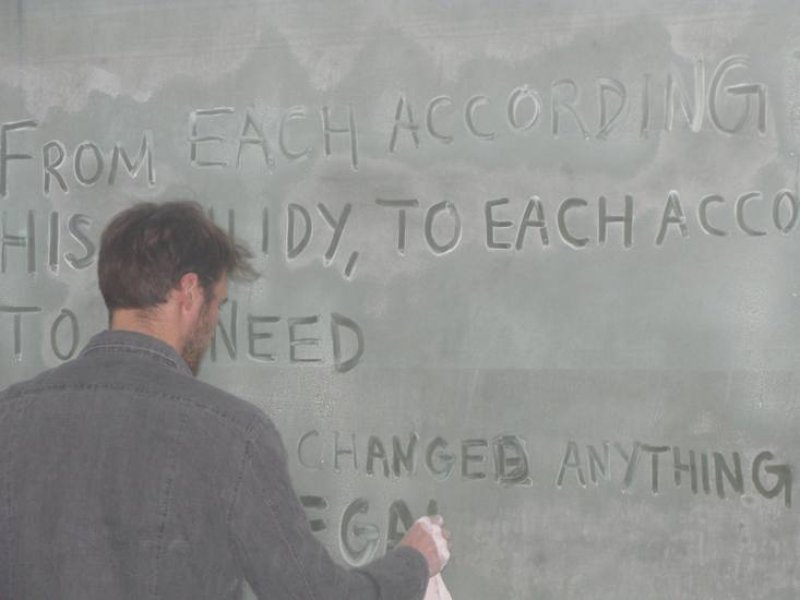 FROM EACH ACCORDING
HIS TO EACH ACCO
TO NEED
CHANGED ANYTHING